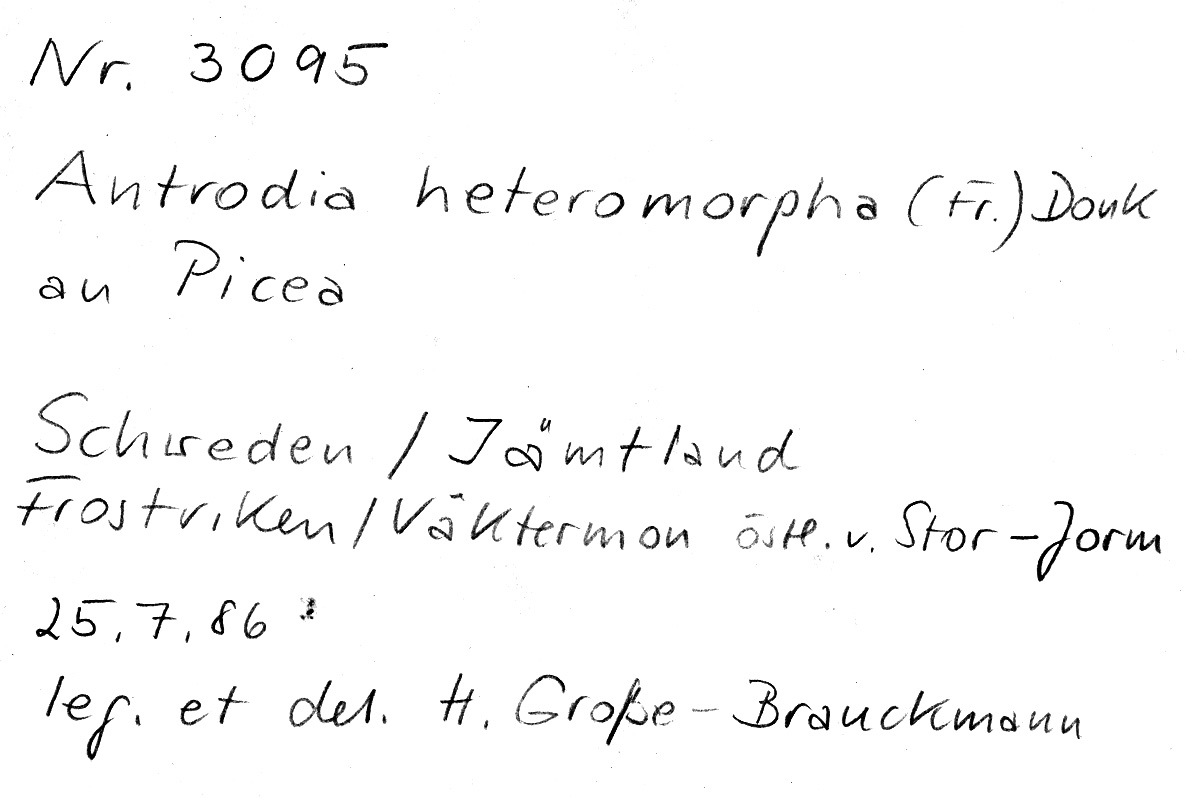 Nr. 3095
Antrodia heteromorpha (Fr.) Donk
an Picea
Schweden / Jämtland
Frostviken / Väktermon östl. v. Stor-Jorm
25.7.86
leg. et det. H. Große-Brauckmann